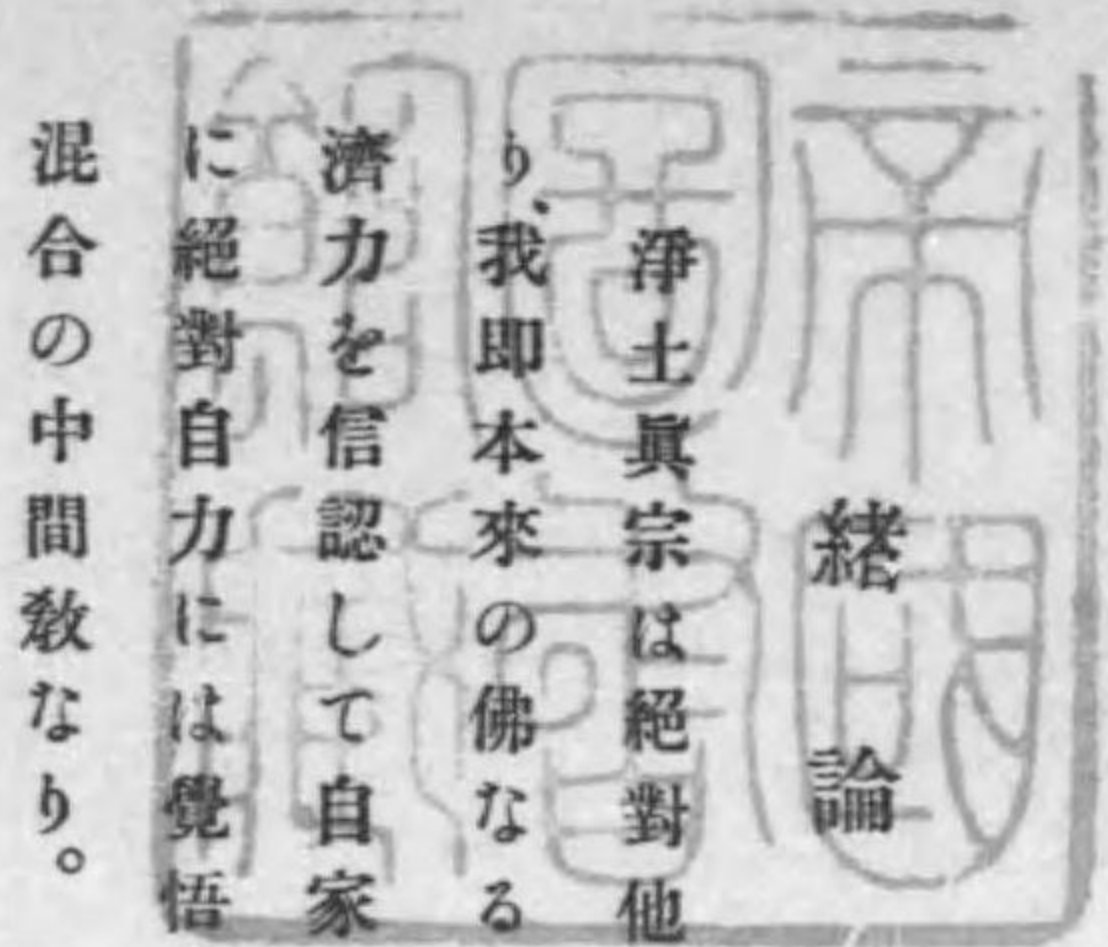 緒論
淨土眞宗は絕對他
り、我即本來の佛なる
濟力を信認して自家
に絕對自力には覺悟
混合の中間敎なり。